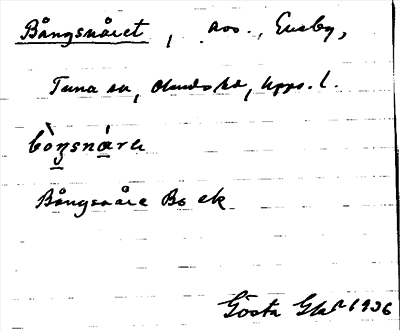 Bångsnåret, avs., Eneby,
Tuna sn, Olands hd, Upps. l.
bòŋsnárɛ
Bångsnåre Bo ek
Gösta 1936